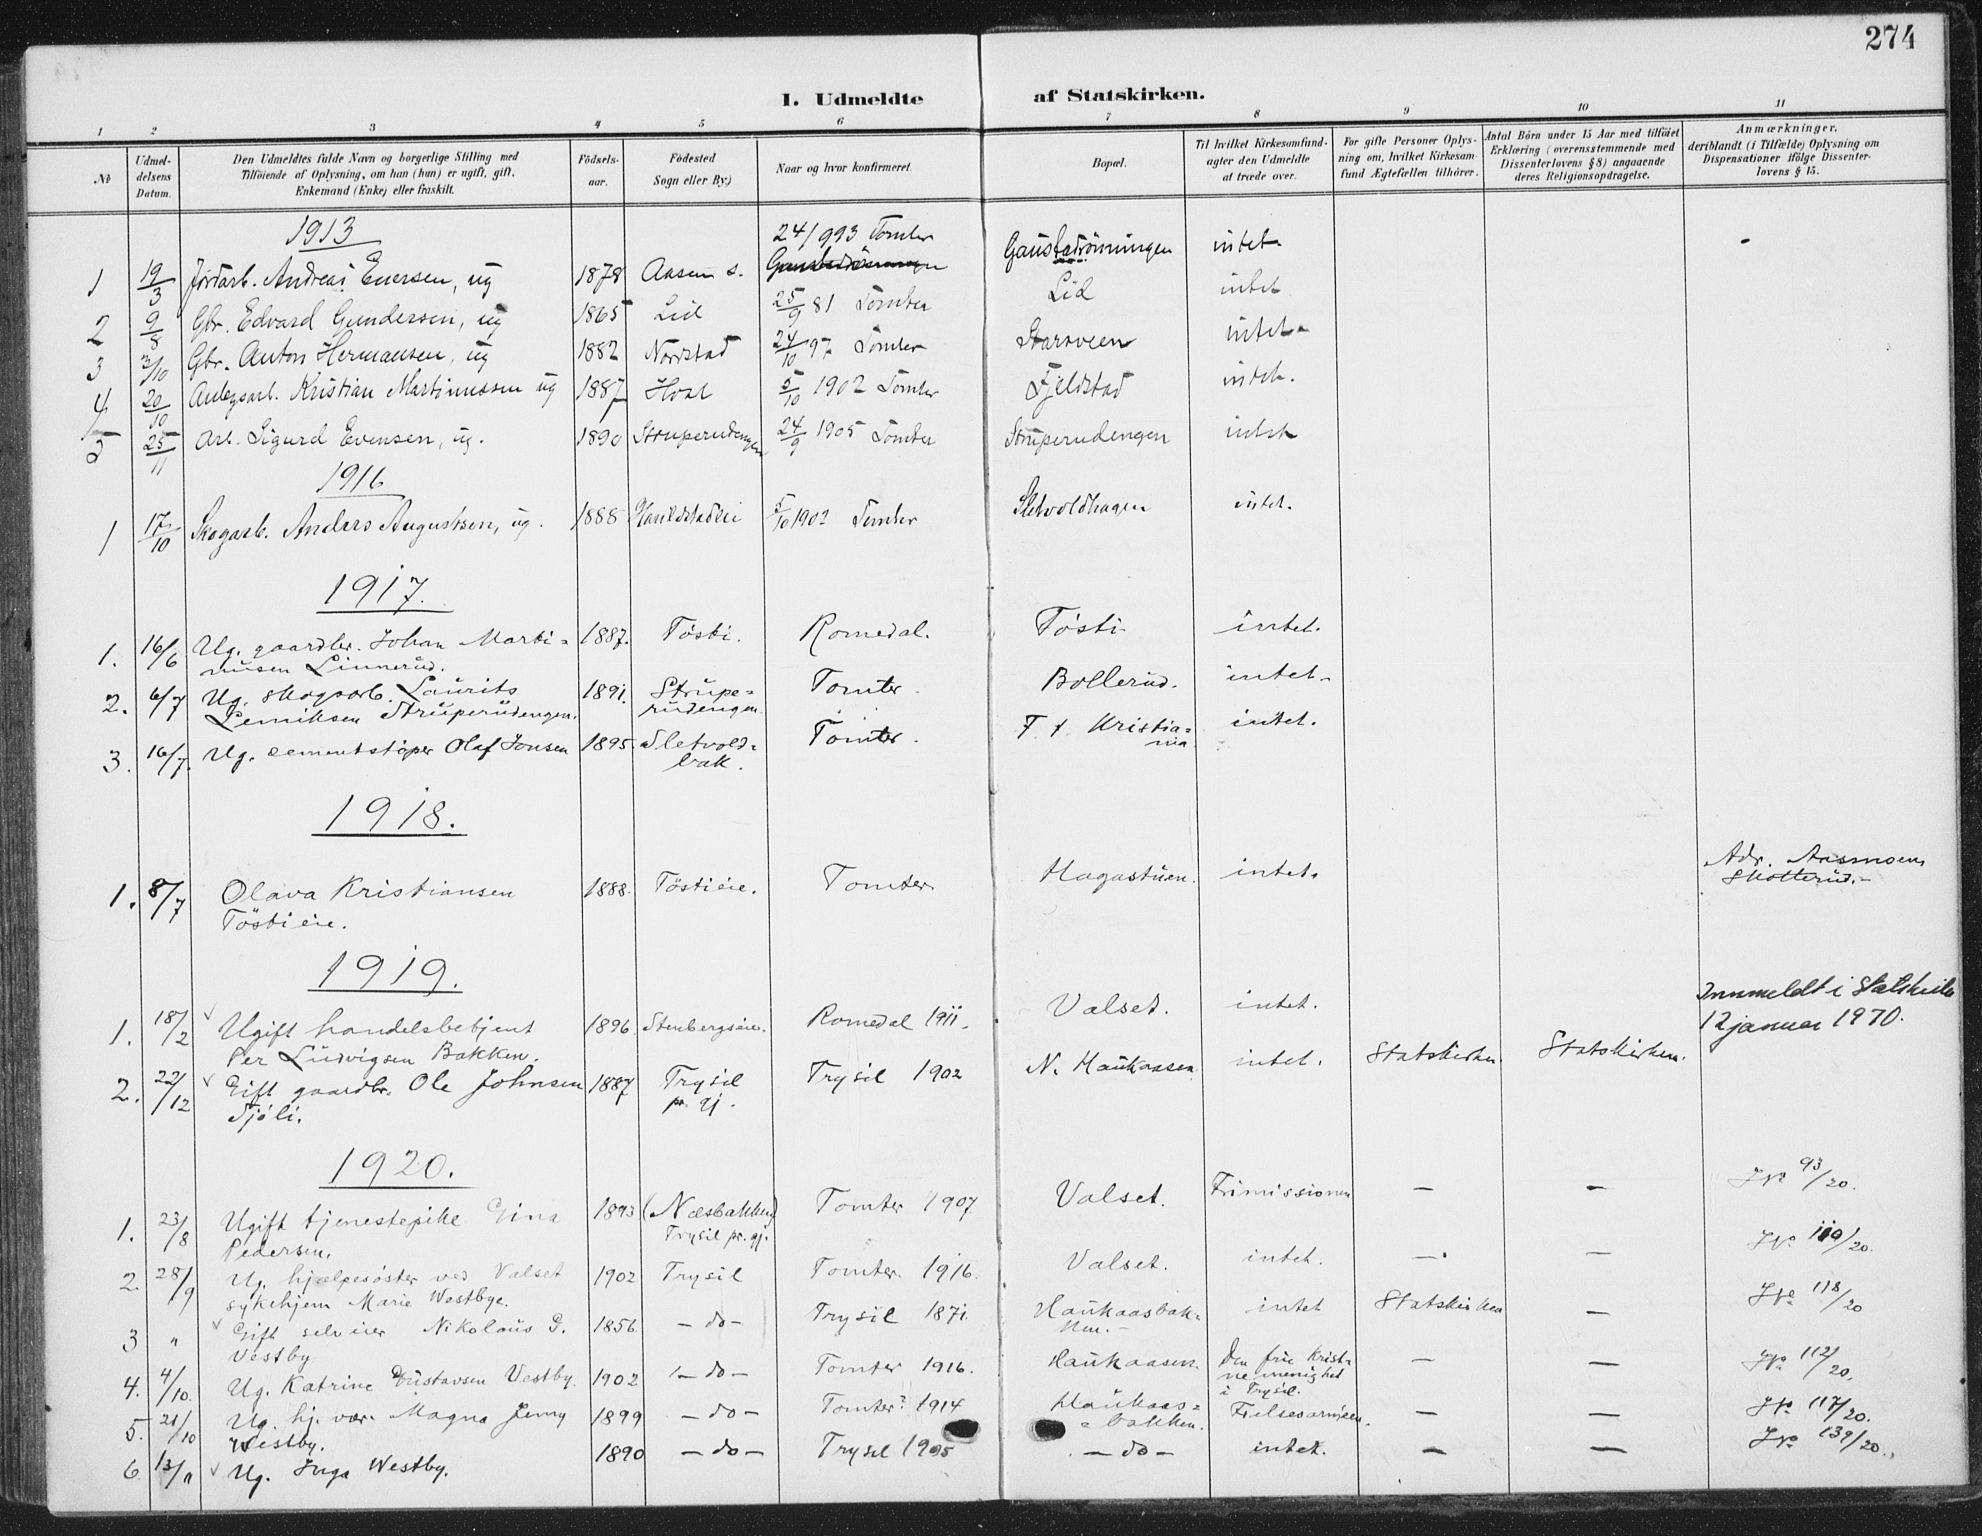 274
I. Udmeldte af Statskirken.
1 2 3 4 5 6 7 8 9 10 11
No
Udmeldelsens Datum.
Den Udmeldtes fulde Navn og borgerlige Stilling med
Tilføiende af Oplysning, om han (hun) er ugift, gift,
Enkemand (Enke) eller fraskilt.
Fødselsaar.
Fødested
Sogn eller By.)
Naar og hvor konfirmeret.
Bopæl.
Til hvilket Kirkesamfund
agter den Udmeldte
at træde over.
For gifte Personer Oplysning om, hvilket Kirkesamfund Ægtefællen tilhører.
Antal Börn under 15 Aar med tilföiet
Erklæring (overensstemmende med
Dissenterlovens § 8) angaaende
deres Religionsopdragelse.
Anmærkninger,
deriblandt (i Tilfælde) Oplysning om
Dispensationer ifölge Dissenterlovens § 15.
1913
24/993 Tomter
1 19/3 Jordarb. Andreas Evensen, ug 1878 Aasen s. Gaustadrönningen intet
2 9/8 Gbr. Edvard Gundersen, ug 1865 Lid 25/9 81 Tomter Lid intet
3 3/10 Gbr. Anton Hermansen, ug 1882 Nordstad 24/10 97 Tomter intet
4 20/10 Anlegsarb. Kristian Martinussen ug 1887 Hoel 5/10 1902 Tomter Fjeldstad intet.
5 25/11 Arb. Sigurd Evensen, ug. 1890 Struperudengen 24/9 1905 Tomter Struperudengen intet
1916
1 17/10 Skogarb. Anders Augustsen, ug. 1888 5/10 1902 Tomter Sletvoldhagen intet.
1917.
1. 16/6 Ug. gaardbr. Johan Marti= 1887. Tösti. Romedal. Tösti intet.
nusen Linnerud.
2. 6/7 Ug. skogsarb. Laurits 1891. Strupe= Tomter. Bollerud. intet.
Struperudengen. rudengen.
3. 16/7. Ug. sementstöper Olaf Jonsen 1895. Sletvold= Tomter. F. t. Kristia= intet.
bak. nia
1918.
1. 8/7 Olava Kristiansen 1888. Töstieie. Tomter Hagastuen. intet. Adr. Aasmoen
Töstieie. Skotterud.
1919.
1. 18/2 Ugift handelsbetjent 1896. Stenbergseie. Romedal 1911. Valset. intet. Innmeldt i Statskirken
Per Ludvigsen Bakken. 12 januar 1970.
2. 22/12 Gift gaardbr. Ole Johnsen 1887 Trysil Trysil 1902 N. Haukaasen intet. Statskirken. Statskirken.
Sjöli. pr. gj.
1920.
1. 23/8 Ugift tjenestepike Gina 1893 (Næsbakken) Tomter 1907 Valset. Frimissionen — — JNo 93/20.
Pedersen. Trysil pr. gj.
2. 28/9 Ug. hjælpesöster ved Valset 1902 Trysil Tomter. 1916. Valset. intet. — — JNo 119/20.
sykehjem Marie Westbye.
3 " Gift selveier Nikolaus G. 1856. — do — Trysil 1871. Haukaasbak= intet Statskirken — JNo 118/20
Vestby ken.
4. 4/10. Ug. Katrine Gustavsen Vestby. 1902 — do — Tomter 1916. Haukaasen. Den frie Krist= — — JNo 112/20.
ne menighet
i Trysil.
5. 21/10 Ug. hj. vær. Magna Jenny 1899 — do — Tomter? 1914 Haukaas= Frelsesarmeen. — — JNo 117/20.
Westby. = bakken.
6. 13/11 Ug. Inga Westby. 1890 — do — Trysil 1905 — do — intet. — — JNo 139/20.